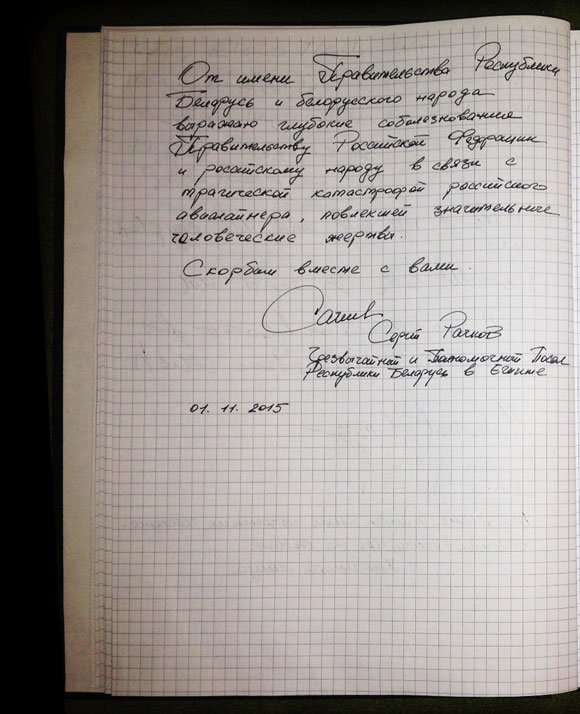 От имени Правительства Республики
Беларусь и белорусского народа
выражаю глубокие соболезнования
Правительству Российской Федерации
и российскому народу в связи с
трагической катастрофой российского
авиалайнера, повлекшей значительные
человеческие жертвы.
Скорбим вместе с вами.
Сергей Рачков
Чрезвычайный и Полномочный Посол
Республики Беларусь в Египте
01. 11. 2015